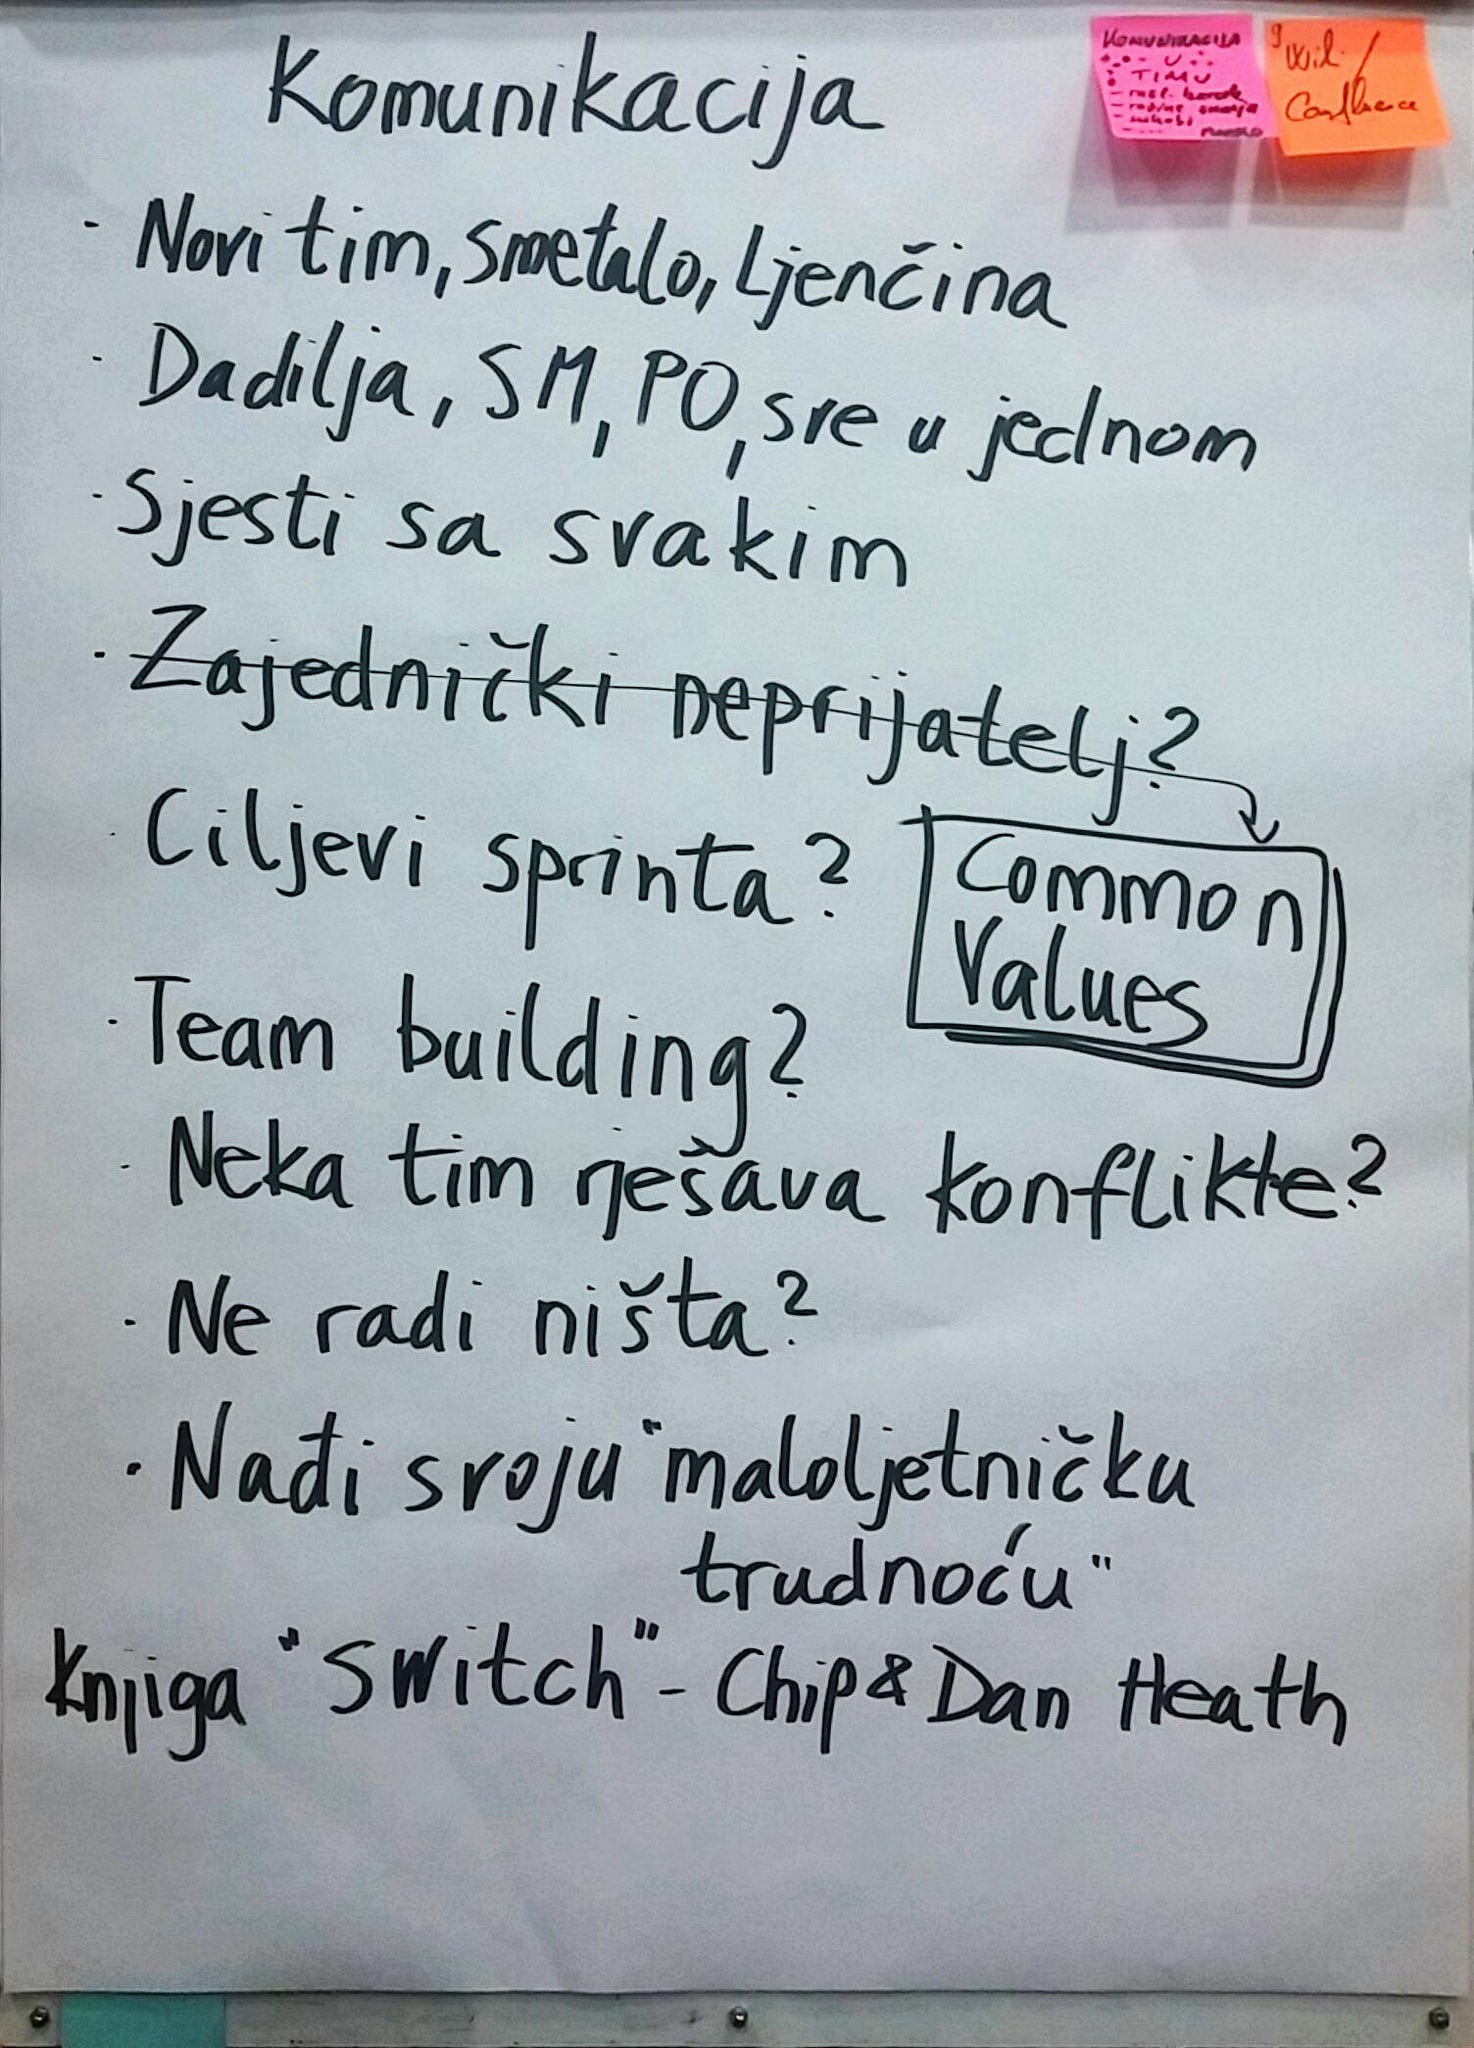 Komunikacija
KOMUNIKACIJA
U
TIMU
Wiki /
Confluence
· Novi tim, smetalo, Ljenčina
· Dadilja, SM, PO, sve u jednom
· Sjesti sa svakim
· Zajednički neprijatelj?
· Ciljevi sprinta?
Common
Values
· Team building?
· Neka tim rješava konflikte?
· Ne radi ništa?
· Nađi svoju "maloljetničku
trudnoću"
Knjiga "Switch" - Chip & Dan Heath